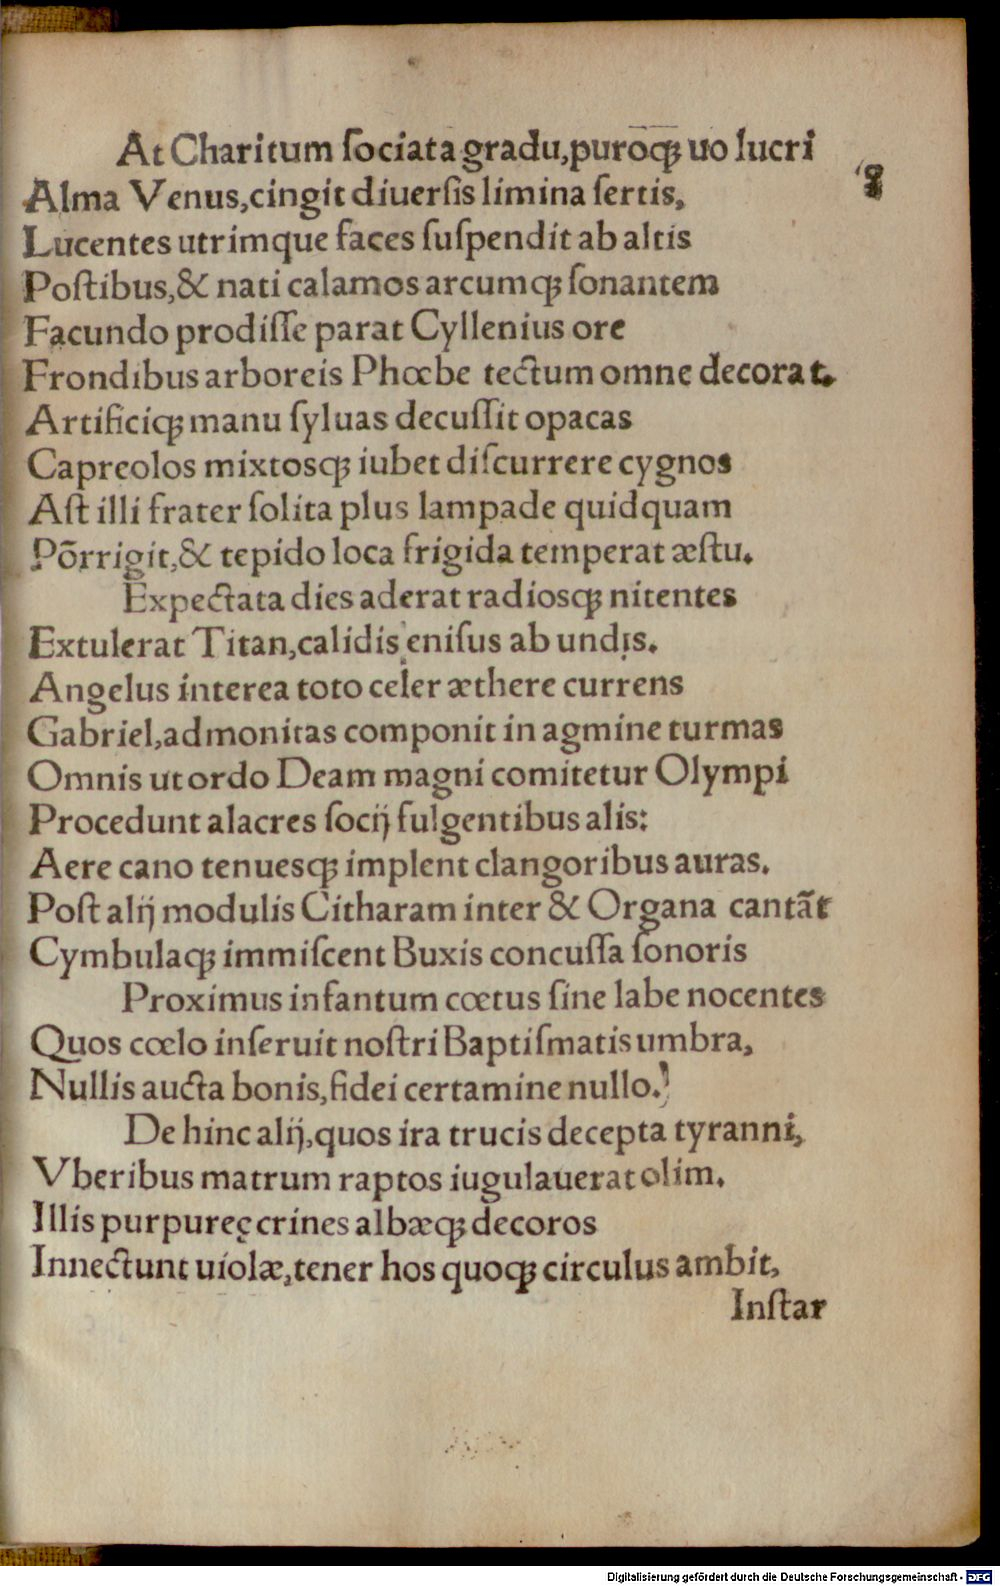 At Charitum ſociata gradu,puroqꝫ uo lucri
8
Alma Venus,cingit diuerſis limina ſertis,
Lucentes utrimque faces ſuſpendit ab altis
Poſtibus,& nati calamos arcumqꝫ ſonantem
Facundo prodiſſe parat Cyllenius ore
Frondibus arboreis Phœbe tectum omne decorat.
Artificiqꝫ manu ſyluas decuſſit opacas
Capreolos mixtosqꝫ iubet diſcurrere cygnos
Aſt illi frater ſolita plus lampade quidquam
Põrrigit,& tepido loca frigida temperat æſtu.
Expectata dies aderat radiosqꝫ nitentes
Extulerat Titan,calidis eniſus ab undis.
Angelus interea toto celer æthere currens
Gabriel,admonitas componit in agmine turmas
Omnis ut ordo Deam magni comitetur Olympi
Procedunt alacres ſocij fulgentibus alis:
Aere cano tenuesqꝫ implent clangoribus auras.
Poſt alij modulis Citharam inter & Organa cantãt
Cymbulaqꝫ immiſcent Buxis concuſſa ſonoris
Proximus infantum cœtus ſine labe nocentes
Quos cœlo inſeruit noſtri Baptiſmatis umbra,
Nullis aucta bonis,fidei certamine nullo.
De hinc alij,quos ira trucis decepta tyranni,
Vberibus matrum raptos iugulauerat olim.
Illis purpureę crines albæqꝫ decoros
Innectunt uiolæ,tener hos quoqꝫ circulus ambit,
Inſtar
Digitalisierung gefördert durch die Deutsche Forschungsgemeinschaft - DFG